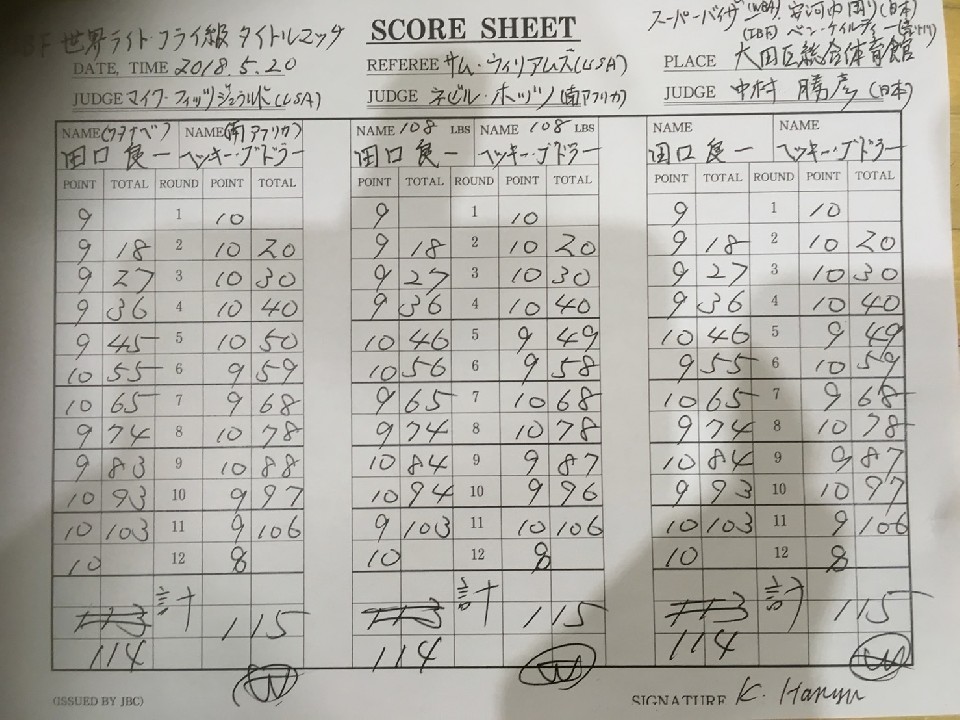 BF 世界ライト・フライ級 タイトルマッチ
SCORE SHEET
スーパーバイザー (WBA) 安河内 剛 (日本)
(IBF) ベン・ケイルティー
DATE, TIME 2018.5.20
REFEREE サム・ウィリアムズ (USA)
PLACE 大田区総合体育館
JUDGE マイク・フィッツジェラルド (USA)
JUDGE ネビル・ホッツ (南アフリカ)
JUDGE 中村 勝彦 (日本)
NAME (ワタナベ) NAME (南アフリカ) NAME 108 LBS NAME 108 LBS NAME NAME
田口 良一 ヘッキー・ブドラー 田口 良一 ヘッキー・ブドラー 田口 良一 ヘッキー・ブドラー
POINT TOTAL ROUND POINT TOTAL POINT TOTAL ROUND POINT TOTAL POINT TOTAL ROUND POINT TOTAL
9 1 10 9 1 10 9 1 10
9 18 2 10 20 9 18 2 10 20 9 18 2 10 20
9 27 3 10 30 9 27 3 10 30 9 27 3 10 30
9 36 4 10 40 9 36 4 10 40 9 36 4 10 40
9 45 5 10 50 10 46 5 9 49 10 46 5 9 49
10 55 6 9 59 10 56 6 9 58 9 55 6 10 59
10 65 7 9 68 9 65 7 10 68 10 65 7 9 68
9 74 8 10 78 9 74 8 10 78 9 74 8 10 78
9 83 9 10 88 10 84 9 9 87 10 84 9 9 87
10 93 10 9 97 10 94 10 9 96 9 93 10 10 97
10 103 11 9 106 9 103 11 10 106 10 103 11 9 106
10 12 8 10 12 8 10 12 8
113 計 115 113 計 115 113 計 115
114 114 114
W W W
(ISSUED BY JBC)
SIGNATURE K.